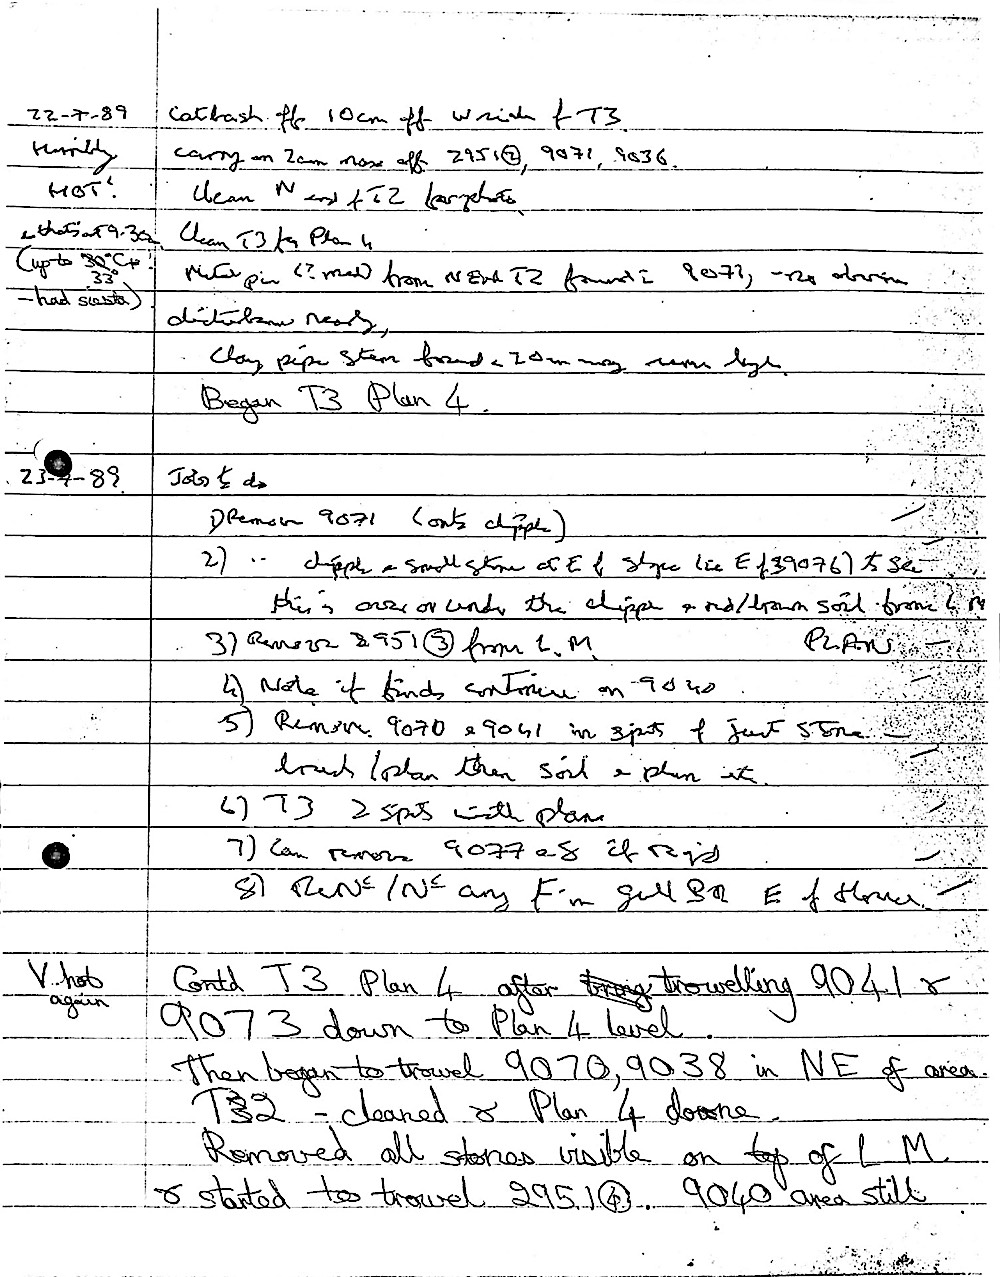 22-7-89 10cm off W side of T3
Horribly carry on 2cm more off 2951②, 9071, 9036.
HOT! Clean N end of T2 for photo
& that's at 9.30 Clean T3 for Plan 4
(up to 30°C+! pin from N End T2 found 9071, - no obvious
33°
- had siesta) disturbance nearby,
Clay pipe stem found
Began T3 Plan 4.
23-7-89 Jobs to do
1) Remove 9071 (onto chipple)
2) " chipple & small stone at E of slope (ie E of 39076) to see
this is over or under the chipple & red/brown soil from L M
3) Remove 2951③ from L.M. PLAN
4) Note if finds continue on 9040
5) Remove 9070 & 9041 in spits of just stone
plan then soil & plan it.
6) T3 2 spits with plan
7) Can remove 9077 & 8 if req'd
8) any F. in E of
V. hot Contd T3 Plan 4 after trowelling 9041 &
again
9073 down to Plan 4 level.
Then began to trowel 9070, 9038 in NE of area.
T2 - cleaned & Plan 4 done.
Removed all stones visible on top of L M
& started to trowel 2951④. 9040 area still